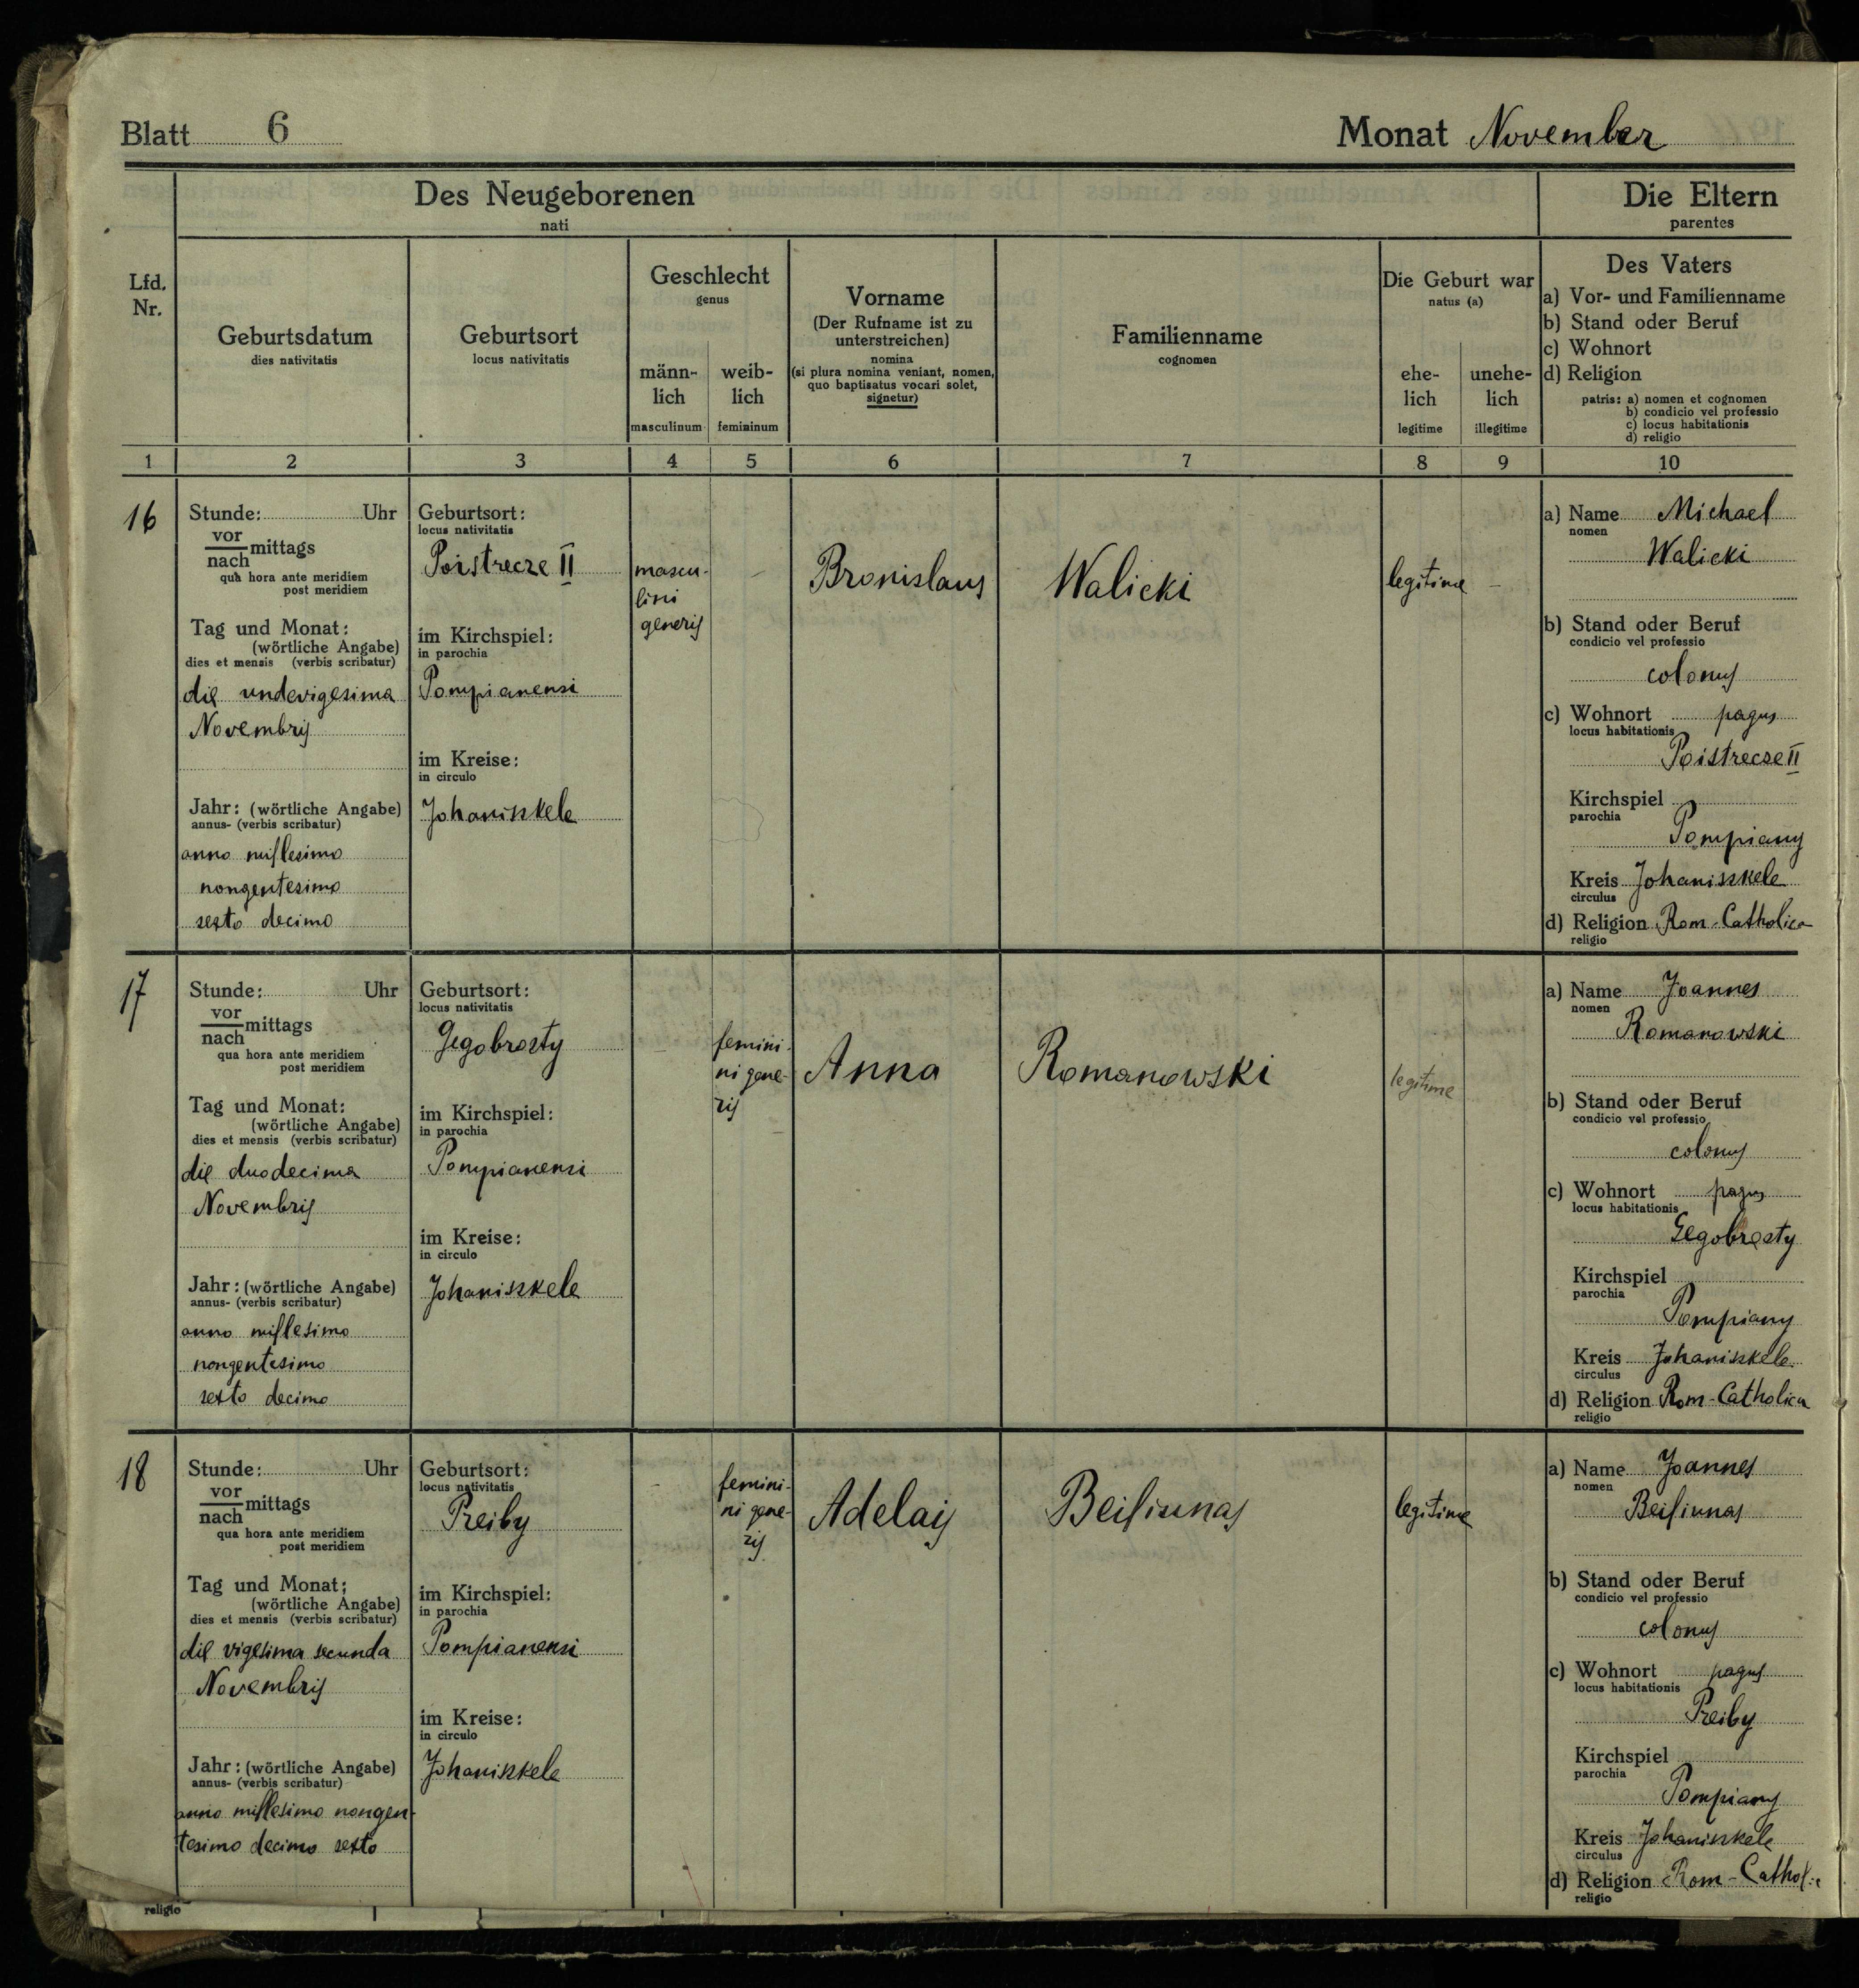 Blatt 6
Monat November
Des Neugeborenen
nati
Die Eltern
parentes
Lfd.
Nr.
Geburtsdatum
dies nativitatis
Geburtsort
locus nativitatis
Geschlecht
genus
männ-
lich
masculinum
weib-
lich
femininum
Vorname
(Der Rufname ist zu
unterstreichen)
nomina
(si plura nomina veniant, nomen,
quo baptisatus vocari solet,
signetur)
Familienname
cognomen
Die Geburt war
natus (a)
ehe-
lich
legitime
unehe-
lich
illegitime
Des Vaters
a) Vor- und Familienname
b) Stand oder Beruf
c) Wohnort
d) Religion
patris: a) nomen et cognomen
b) condicio vel professio
c) locus habitationis
d) religio
1 2 3 4 5 6 7 8 9 10
16
Stunde: Uhr
vor
nach mittags
qua hora ante meridiem
post meridiem
Tag und Monat:
(wörtliche Angabe)
dies et mensis (verbis scribatur)
die undevigesima
Novembris
Jahr: (wörtliche Angabe)
annus- (verbis scribatur)
anno millesimo
nongentesimo
sexto decimo
Geburtsort:
locus nativitatis
Poistrecze II
im Kirchspiel:
in parochia
Pompianensi
im Kreise:
in circulo
Johaniszkele
mascu-
lini
generis
Bronislaus
Walicki
legitime
a) Name Michael
nomen
Walicki
b) Stand oder Beruf
condicio vel professio
colonus
c) Wohnort pagus
locus habitationis
Poistrecze II
Kirchspiel
parochia
Pompiany
Kreis Johaniszkele
circulus
d) Religion Rom-Catholica
religio
17
Stunde: Uhr
vor
nach mittags
qua hora ante meridiem
post meridiem
Tag und Monat:
(wörtliche Angabe)
dies et mensis (verbis scribatur)
die duodecima
Novembris
Jahr: (wörtliche Angabe)
annus- (verbis scribatur)
anno millesimo
nongentesimo
sexto decimo
Geburtsort:
locus nativitatis
Gegobrosty
im Kirchspiel:
in parochia
Pompianensi
im Kreise:
in circulo
Johaniszkele
femini-
ni gene-
ris
Anna
Romanowski
legitime
a) Name Joannes
nomen
Romanowski
b) Stand oder Beruf
condicio vel professio
colonus
c) Wohnort pagus
locus habitationis
Gegobrosty
Kirchspiel
parochia
Pompiany
Kreis Johaniszkele
circulus
d) Religion Rom-Catholica
religio
18
Stunde: Uhr
vor
nach mittags
qua hora ante meridiem
post meridiem
Tag und Monat:
(wörtliche Angabe)
dies et mensis (verbis scribatur)
die vigesima secunda
Novembris
Jahr: (wörtliche Angabe)
annus- (verbis scribatur)
anno millesimo nongen-
tesimo decimo sexto
Geburtsort:
locus nativitatis
Preiby
im Kirchspiel:
in parochia
Pompianensi
im Kreise:
in circulo
Johaniszkele
femini-
ni gene-
ris
Adelais
Beisiunas
legitime
a) Name Joannes
nomen
Beisiunas
b) Stand oder Beruf
condicio vel professio
colonus
c) Wohnort pagus
locus habitationis
Preiby
Kirchspiel
parochia
Pompiany
Kreis Johaniszkele
circulus
d) Religion Rom-Cathol
religio
religio